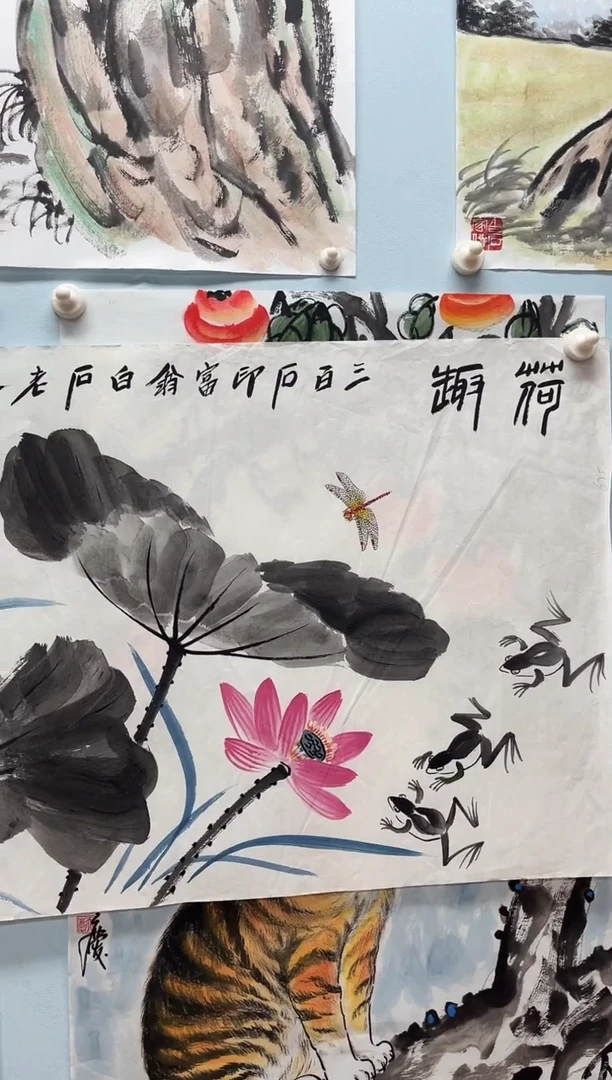 荷趣
三百石印富翁白石老